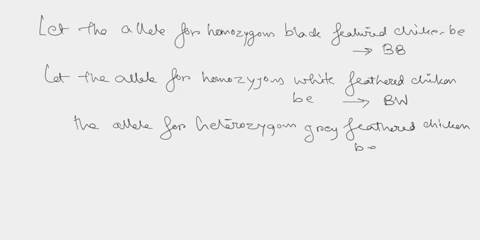 Let the allele for homozygous black featured chiken be
→ BB
Let the allele for homozygous white feathered chiken
be → BW
the allele for heterozygous grey feathered chicken
be